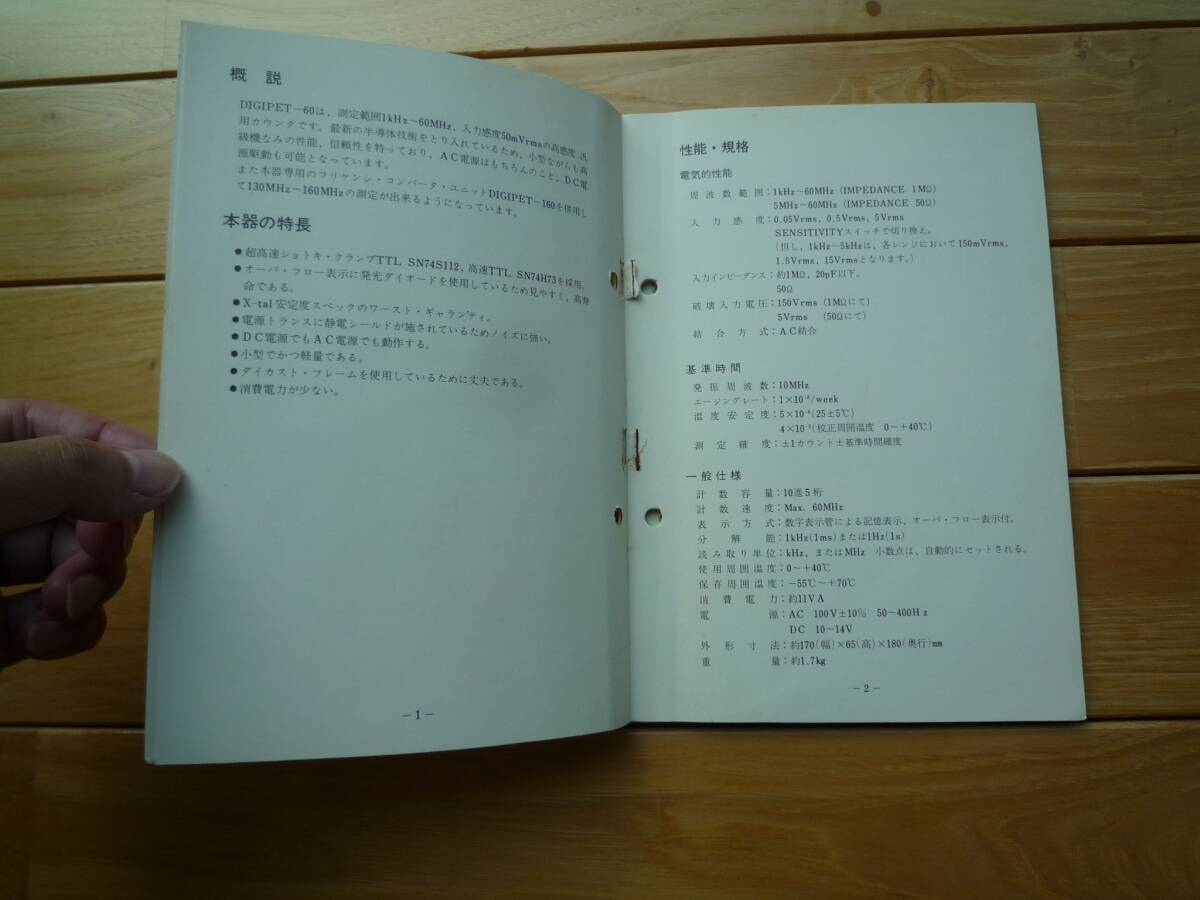 概 説
DIGIPET-60は、測定範囲1kHz~60MHz、入力感度50mVrmsの高感度 汎
用カウンタです。最新の半導体技術をとり入れているため、小型ながらも高
級機なみの性能、信頼性を持っており、AC電源はもちろんのこと、DC電
源駆動も可能となっています。
また本器専用のフリケンシ・コンバータ・ユニットDIGIPET-160を併用し
て130MHz~160MHzの測定が出来るようになっています。
本器の特長
●超高速ショトキ・クランプTTL SN74S112、高速TTL SN74H73を採用。
●オーバ・フロー表示に発光ダイオードを使用しているため見やすく、高寿
命である。
●X-tal安定度スペックのワースト・ギャランティ。
●電源トランスに静電シールドが施されているためノイズに強い。
●DC電源でもAC電源でも動作する。
●小型でかつ軽量である。
●ダイカスト・フレームを使用しているために丈夫である。
●消費電力が少ない。
-1-
性能・規格
電気的性能
周波数範囲:1kHz~60MHz (IMPEDANCE 1MΩ)
5MHz~60MHz (IMPEDANCE 50Ω)
入力感度:0.05Vrms, 0.5Vrms, 5Vrms
SENSITIVITYスイッチで切り換え。
(但し、1kHz~5kHzは、各レンジにおいて150mVrms、
1.5Vrms, 15Vrmsとなります。)
入力インピーダンス:約1MΩ, 20pF以下。
50Ω
破壊入力電圧:150Vrms (1MΩにて)
5Vrms (50Ωにて)
結合方式:AC結合
基準時間
発振周波数:10MHz
エージングレート:1×10⁻⁶/week
温度安定度:5×10⁻⁶(25±5℃)
4×10⁻⁵(校正周囲温度 0~+40℃)
測定確度:±1カウント±基準時間確度
一般仕様
計数容量:10進5桁
計数速度:Max. 60MHz
表示方式:数字表示管による記憶表示、オーバ・フロー表示付。
分解能:1kHz(1ms)または1Hz(1s)
読み取り単位:kHz、またはMHz 小数点は、自動的にセットされる。
使用周囲温度:0~+40℃
保存周囲温度:-55℃~+70℃
消費電力:約11VA
電源:AC 100V±10% 50~400Hz
DC 10~14V
外形寸法:約170(幅)×65(高)×180(奥行)mm
重量:約1.7kg
-2-